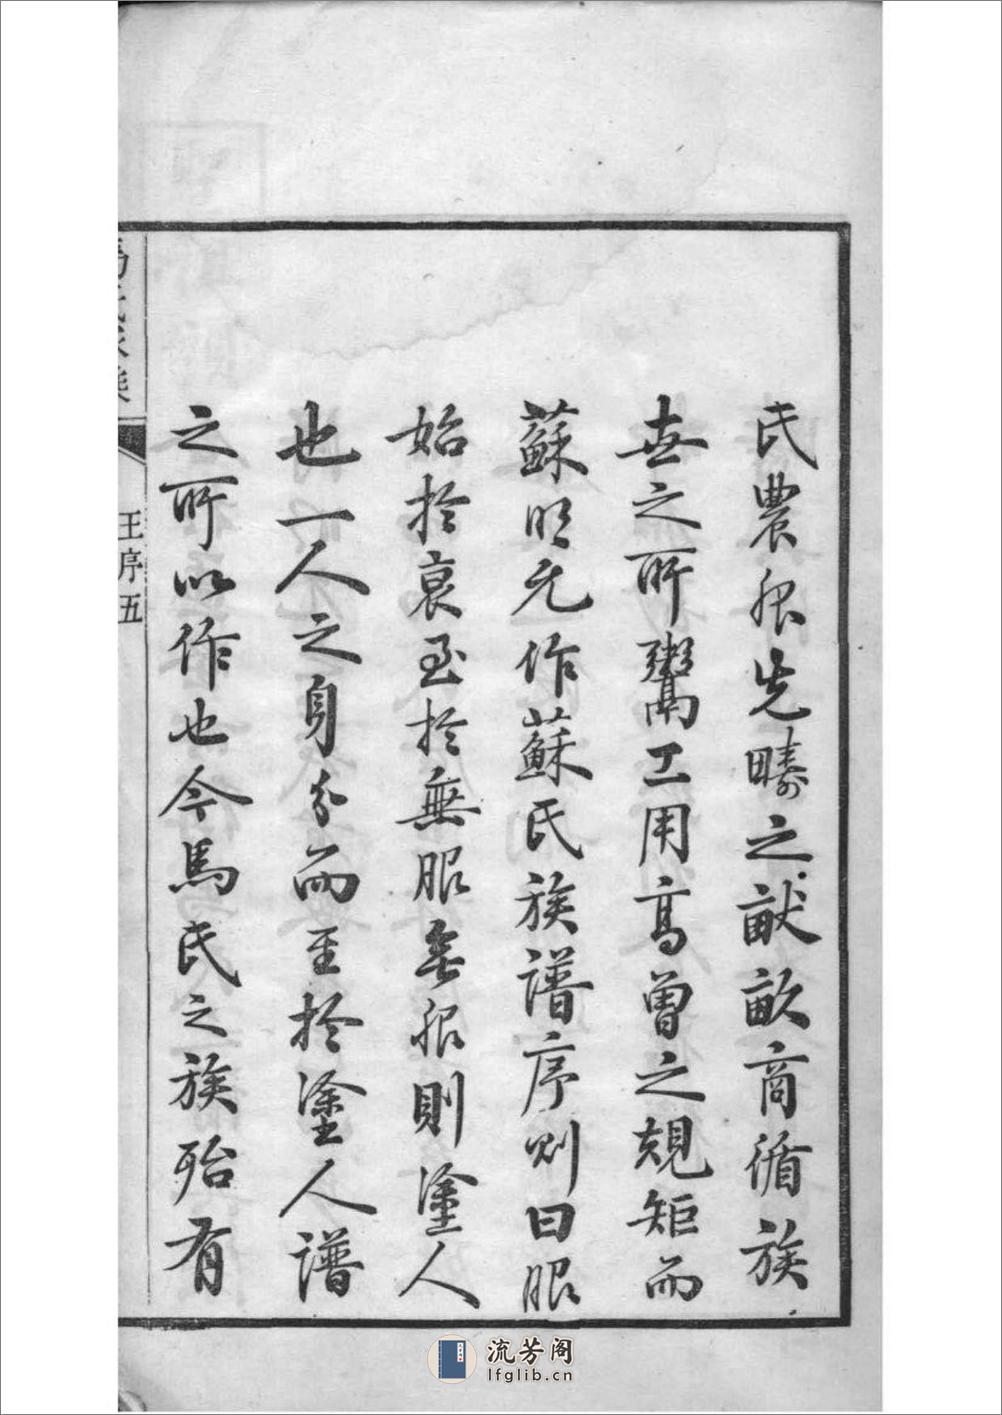 氏農服先疇之畎畝商循族
世之所鬻工用高曾之規矩而
蘇明允作蘇氏族譜序則曰服
始於衰至於無服無服則塗人
也一人之身分而至於塗人譜
之所以作也今馬氏之族殆有
馬氏家乘
王序五
流芳阁
lfglib.cn